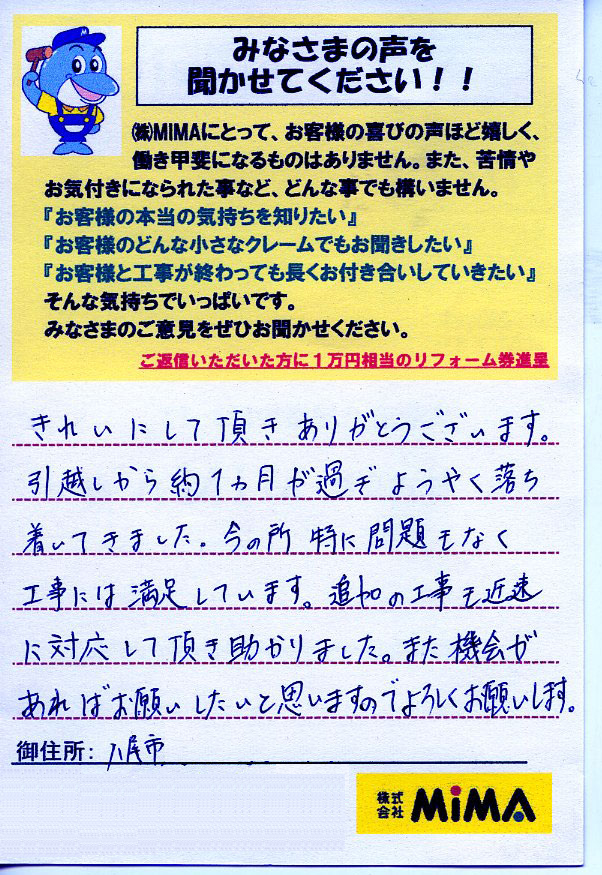 みなさまの声を
聞かせてください！！
㈱MIMAにとって、お客様の喜びの声ほど嬉しく、
働き甲斐になるものはありません。また、苦情や
お気付きになられた事など、どんな事でも構いません。
『お客様の本当の気持ちを知りたい』
『お客様のどんな小さなクレームでもお聞きしたい』
『お客様と工事が終わっても長くお付き合いしていきたい』
そんな気持ちでいっぱいです。
みなさまのご意見をぜひお聞かせください。
ご返信いただいた方に１万円相当のリフォーム券進呈
きれいにして頂きありがとうございます。
引越しから約1ヵ月が過ぎようやく落ち
着いてきました。今の所特に問題もなく
工事には満足しています。追加の工事も迅速
に対応して頂き助かりました。また機会が
あればお願いしたいと思いますのでよろしくお願いします。
御住所: 八尾市
株式会社 MiMA
M